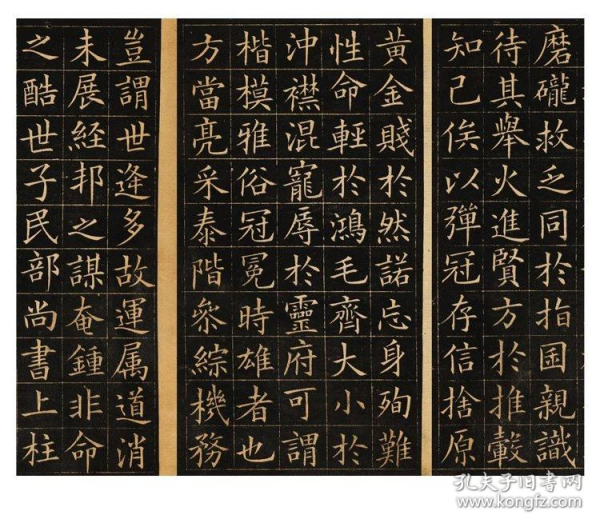 磨礲救乏同於指囷親識
待其舉火進賢方於推轂
知己俟以彈冠存信捨原
黃金賤於然諾忘身殉難
性命輕於鴻毛齊大小於
沖襟混寵辱於靈府可謂
楷模雅俗冠冕時雄者也
方當亮采泰階參綜機務
豈謂世逢多故運属道消
未展経邦之謀奄鍾非命
之酷世子民部尚書上柱
孔夫子旧书网
www.kongfz.com